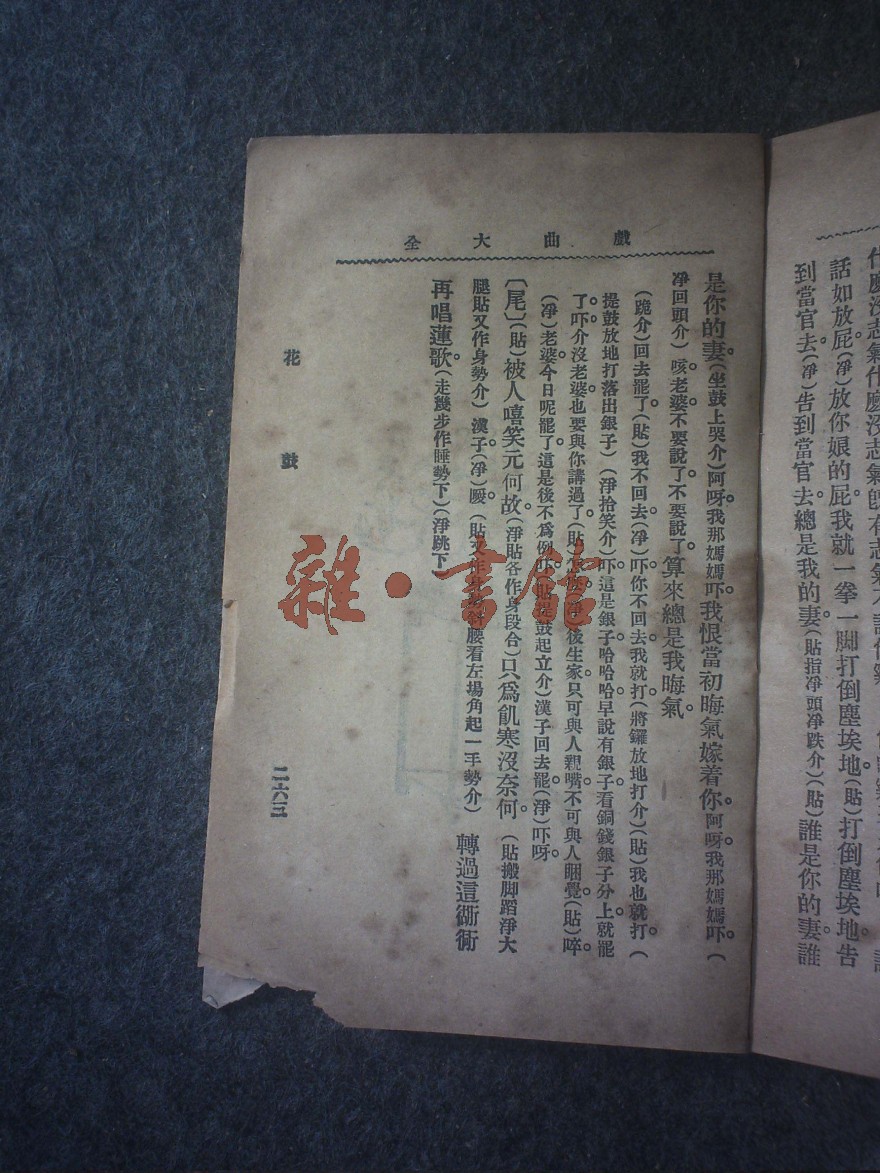 什麽沒志氣什麽沒志氣
話如放屁(淨)放你娘的屁我就一拳一脚打倒塵埃地(貼)打倒塵埃地告
到當官去(淨)告到當官去總是我的妻(貼指淨頭淨跌介)(貼)誰是你的妻誰
戲曲大全
是你的妻(坐鼓上哭介)阿呀我那媽媽吓我恨當初晦氣嫁着你阿呀我那媽媽吓(
淨回頭介)咳老婆不要說了不要說了算來總是我晦氣
(跪介)回去罷了(貼)我不回去(淨)吓你不回去我就打(將鑼放地打介)(貼)我也就打(
提鼓放地打落出銀子)(淨拾笑介)吓這是銀子哈哈哈早說有銀子看銅錢銀子分上就罷
了吓介沒老婆也要與你講過了(貼)後生家只可與人親嘴不可與人睏覺(貼)啐
(淨)老婆今日呢罷了這是後不爲例吓(貼提鼓起立介)漢子回去罷(淨)吓呀
〔尾〕(貼)被人嘻笑元何故(淨貼各作身段合)只爲飢寒沒奈何(貼搬脚蹈淨大
腿貼又作身勢介)漢子(淨)嗄(貼又作身勢斜腰看左場角起一手勢介)轉過這衚衕
再唱蓮歌(走幾步作睡勢下)(淨跳下)
花鼓
二六三
雜·書館